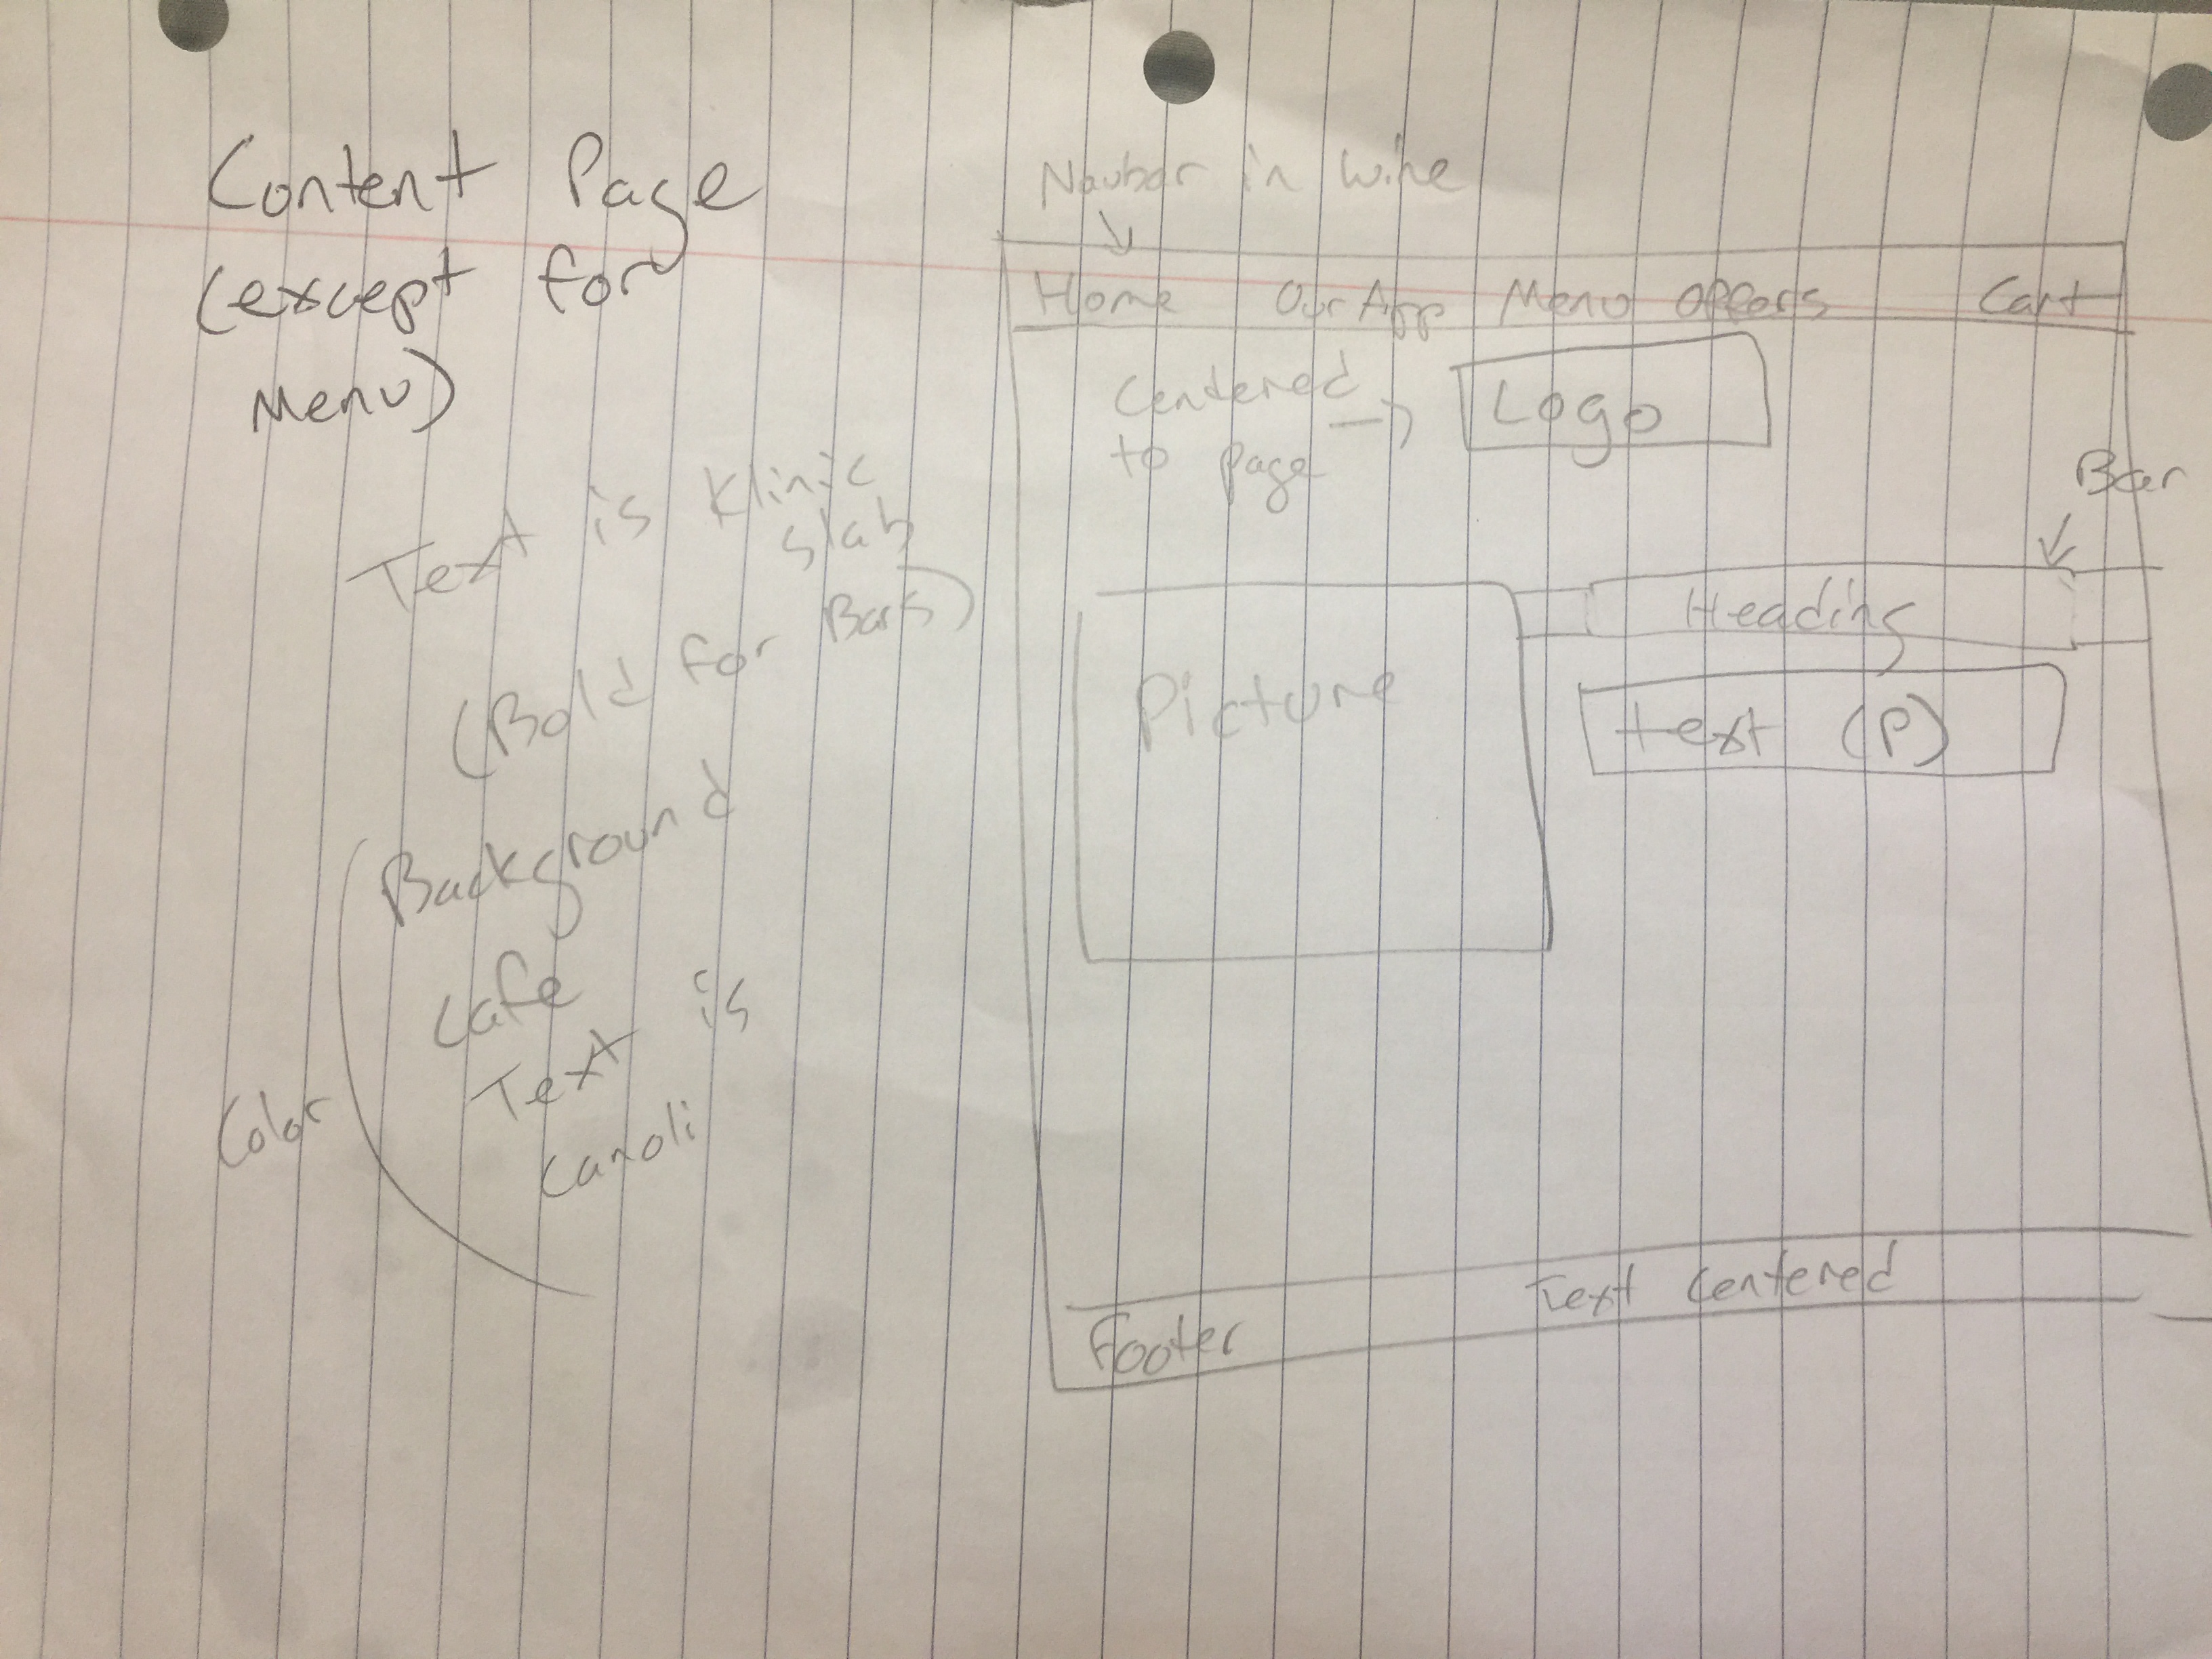 Content Page
(except for
Menu)
Text is Klinic
Slab
(Bold for Bars)
Background
Cafe
Text is
Canoli
Color
Navbar in Wine
Home Our App Menu Offers Cart
Centered
to page
Logo
Bar
Heading
Picture
text (P)
Text Centered
Footer